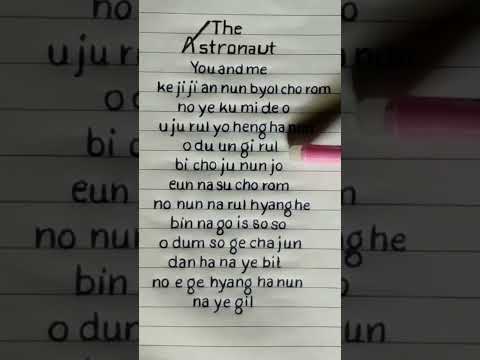 The
Astronaut
You and me
ke ji ji an nun byol cho rom
no ye ku mi de o
u ju rul yo heng ha nun
o du un gi rul
bi cho ju nun jo
eun na su cho rom
no nun na rul hyang he
bin na go is so so
o dum so ge cha jun
dan ha na ye bit
no e ge hyang ha nun
na ye gil